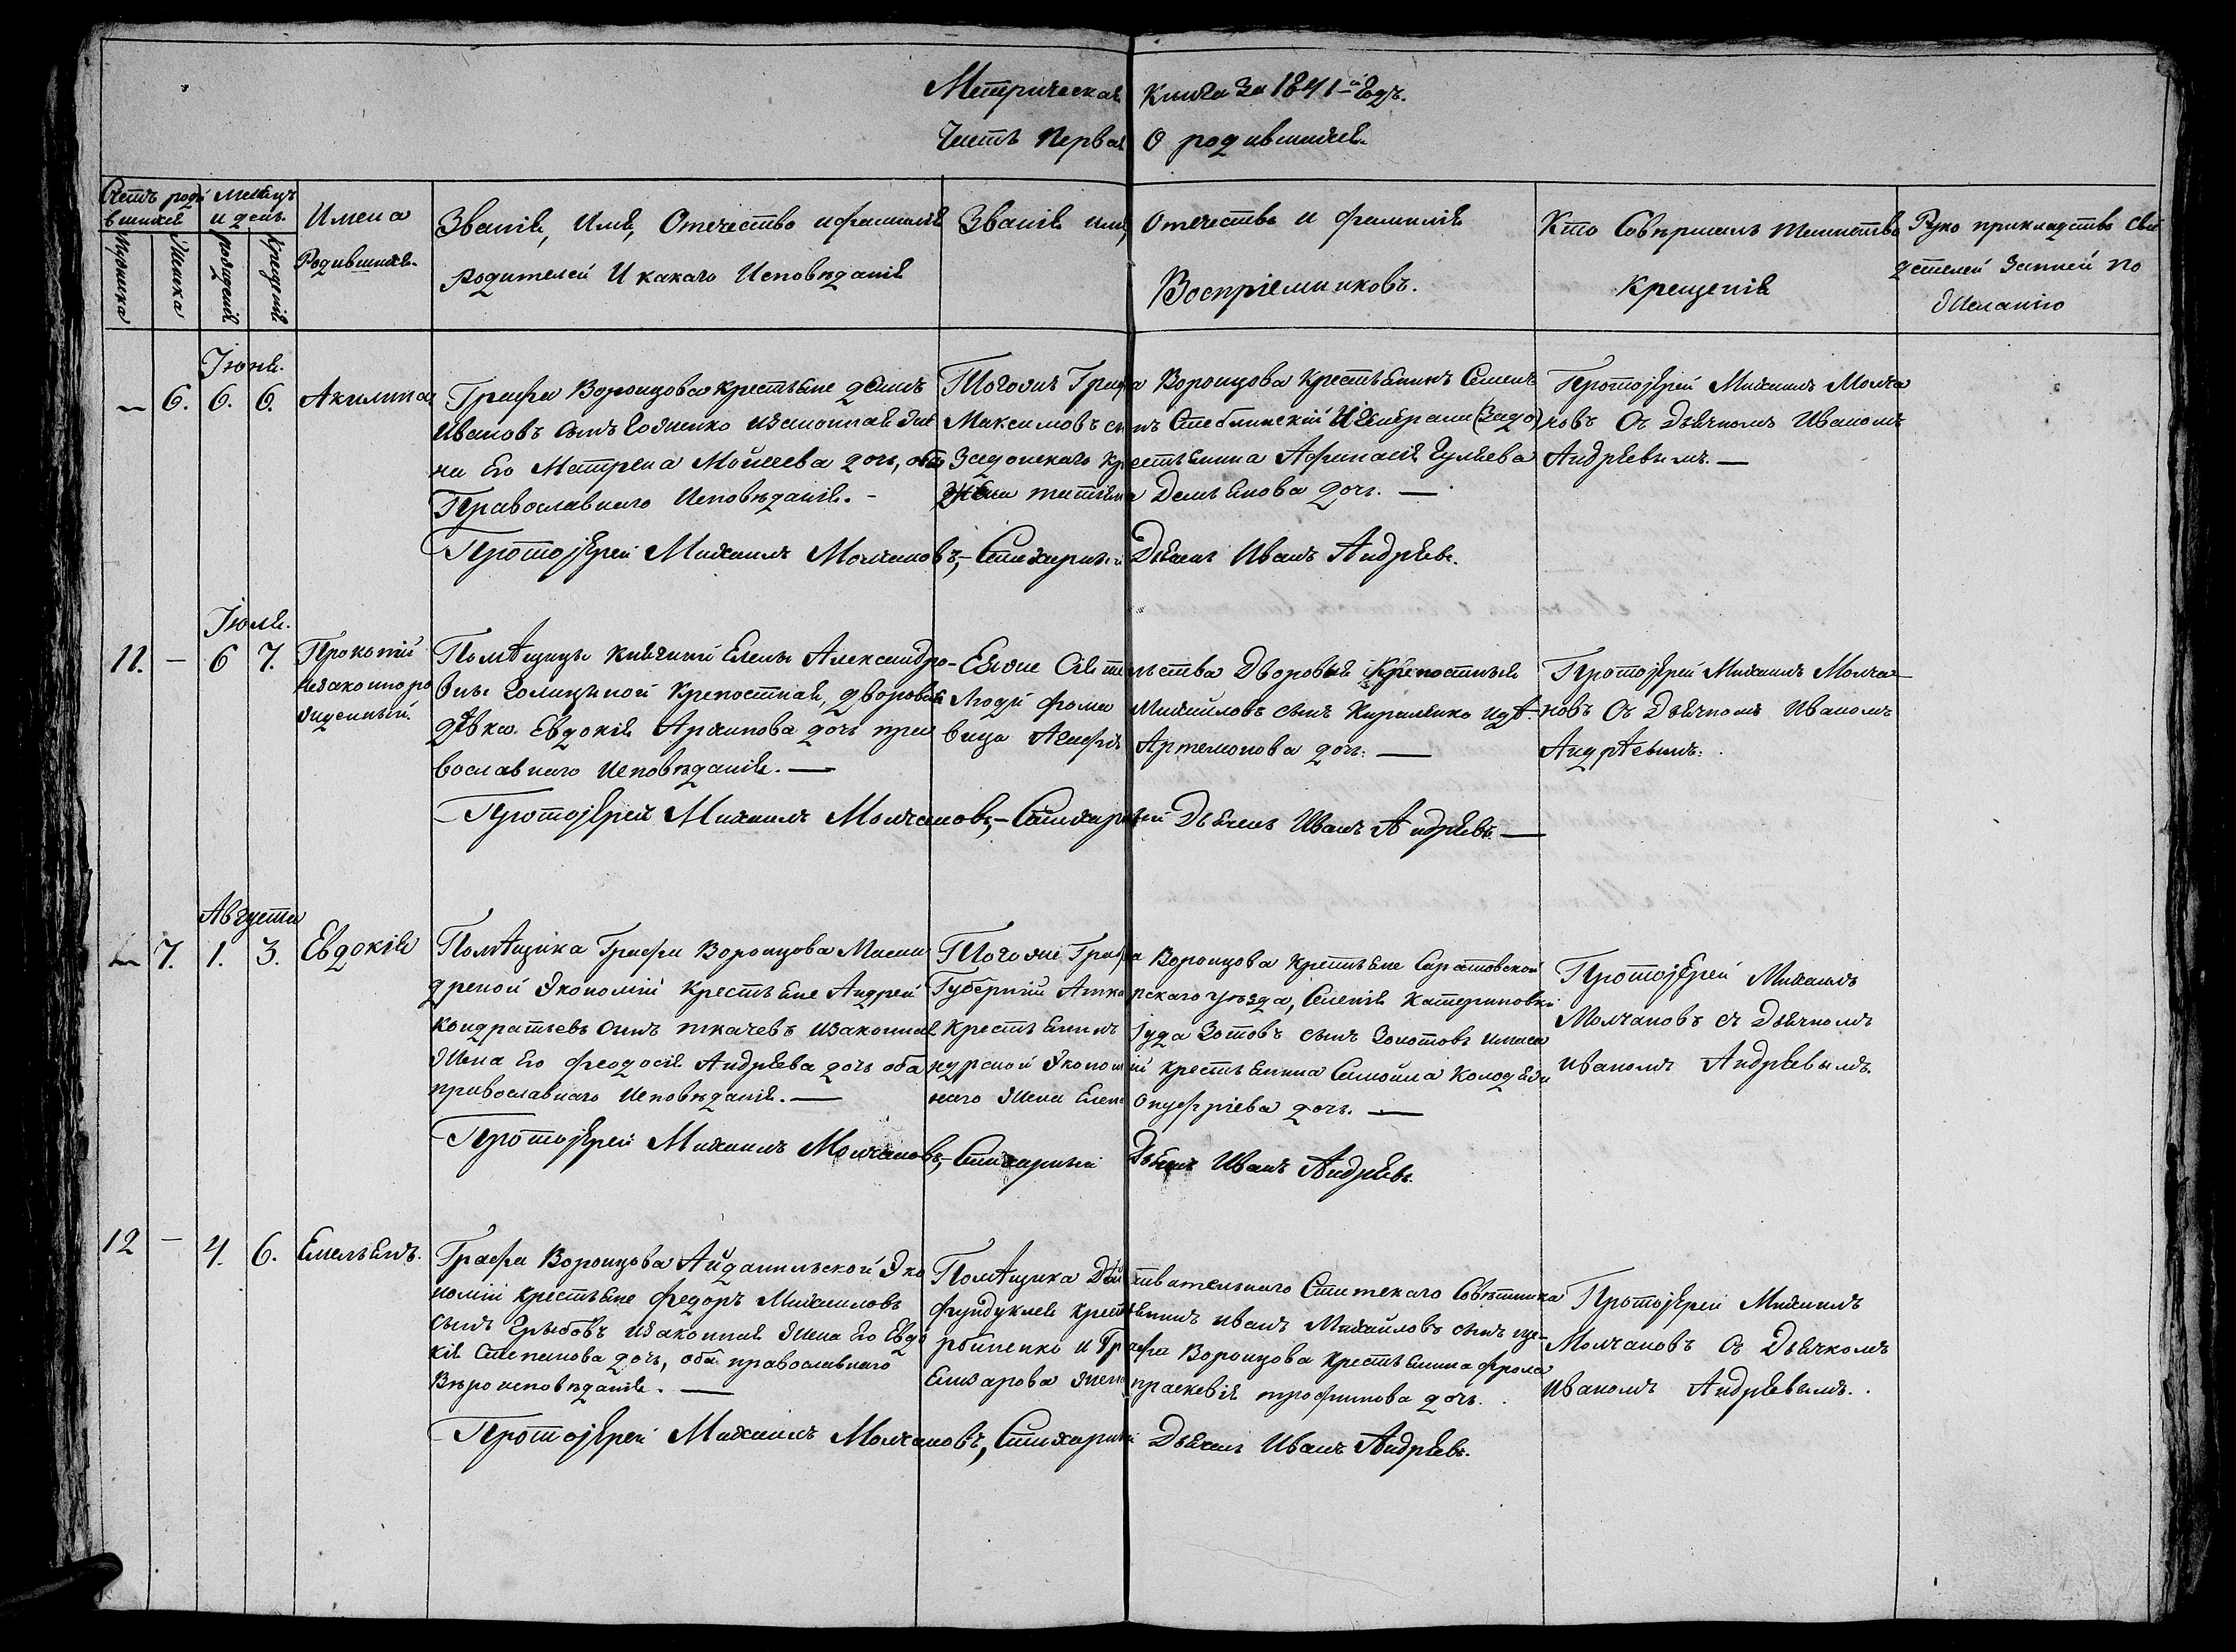 Метрическая Книга за 1841-й Годъ.
Часть Первая О родившихся.
Счетъ роди
вшихся
Месяцъ
и день
Имена
Родившихся.
Званіе, Имя, Отечество и фамилія
Родителей И какаго Исповѣданія
Званіе имя, Отечество и фамилія
Воспріемниковъ.
Кто Совершалъ Таинство
Крещенія
Руко прикладство Сви
детелей записей по
Желанію
Мужиска
Женска
Рожденія
Крещенія
Іюня.
— 6. 6. 6. Акилина
Графа Воронцова крестьяне
Ивановъ сынъ изаконная Же
на Его Матрена Моисеева дочь, оба
Православнаго Исповѣданія. -
Тогожъ Графа Воронцова Крестьянинъ Семенъ
Максимовъ сынъ Стеблинский
Задонскаго крестьянина Афанасія Гуляева
Жена татіана Демьянова дочь. —
Протоjерей Михаилъ Молча
новъ Съ Дьячкомъ Иваномъ
Андреевымъ. —
Протоjерей Михаилъ Молчановъ, - Стихарный Дьячекъ Иванъ Андреевъ.
Іюля.
11. — 6 7. Прокопій
незаконноро
жденный.
Помѣщицы Княгини Елены Александро-
вны Голицыной Крепостная, дворовая
дѣвка Евдокія Архипова дочь пра
вославнаго Исповѣданія. —
Еяже Сіятельства Дворовые Крепостныя
Люди фома Михайловъ сынъ Кириленко идѣ-
вица Агафія Артемонова дочь. —
Протоjерей Михаилъ Молча-
новъ Съ Дьячкомъ Иваномъ
Андрѣевымъ.
Протоjерей Михаилъ Молчановъ, - Стихарный Дьячекъ Иванъ Андреевъ. —
Августа
— 7. 1. 3. Евдокія
Помѣщика Графа Воронцова Масан
дрской Экономіи Крестьяне Андрей
Кондратьевъ сынъ ткачевъ изаконная
Жена Его феодосія Андреева дочь оба
православнаго Исповѣданія. —
Тогоже Графа Воронцова крестьяне Саратовской
Губерніи Аткарскаго уѣзда, Селенія Катериновки
Крестьянинъ Іуда Зотовъ сынъ Золотовъ имаса
ндрской Экономіи крестьянина Самойла Колодязн
наго Жена Елена Онуфріева дочь. —
Протоjерей Михаилъ
Молчановъ съ Дьячкомъ
Иваномъ Андреевымъ.
Протоjерей Михаилъ Молчановъ, - Стихарный Дьячекъ Иванъ Андреевъ.
12 — 4. 6. Емельянъ.
Графа Воронцова Айданильской Эко
номіи крестьяне федоръ Михаиловъ
сынъ Грыбовъ изаконная Жена Его Евдо
кія Степанова дочь, оба православнаго
Вѣроисповѣданія. —
Помѣщика Действительнаго Статскаго Совѣтника
фундуклея крестьянинъ иванъ Михайловъ сынъ ще-
рбиненко и Графа Воронцова крестьянина фрола
Елизарова жена праскевія трофимова дочь.
Протоjерей Михаилъ
Молчановъ Съ Дьячкомъ
Иваномъ Андреевымъ.
Протоjерей Михаилъ Молчановъ, Стихарный Дьячекъ Иванъ Андреевъ.